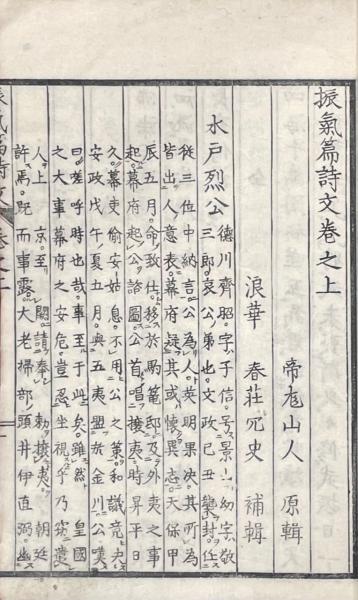 振氣篇詩文卷之上
帝尨山人 原輯
浪華 春莊冗史 補輯
水戸烈公
德川齊昭字子信号景山幼字敬
三郎哀公弟也文政己丑襲封任
從三位中納言公爲人英明果決其所爲
皆出人意表幕府疑其或懷異志天保甲
辰五月命致仕移於駒籠邸及外夷之事
起幕府起公諮圖公首唱攘夷時昇平日
久幕吏偷安姑息不用公之策和議竟決
安政戊午夏五月與五夷盟於金川公嘆
曰嗟乎時也哉事至于此矣雖然皇國
之大事幕府之安危豈忍坐視乎乃竊遣
人上京至闕請奉勅攘夷朝廷
許焉既而事露大老掃部頭井伊直弼幽